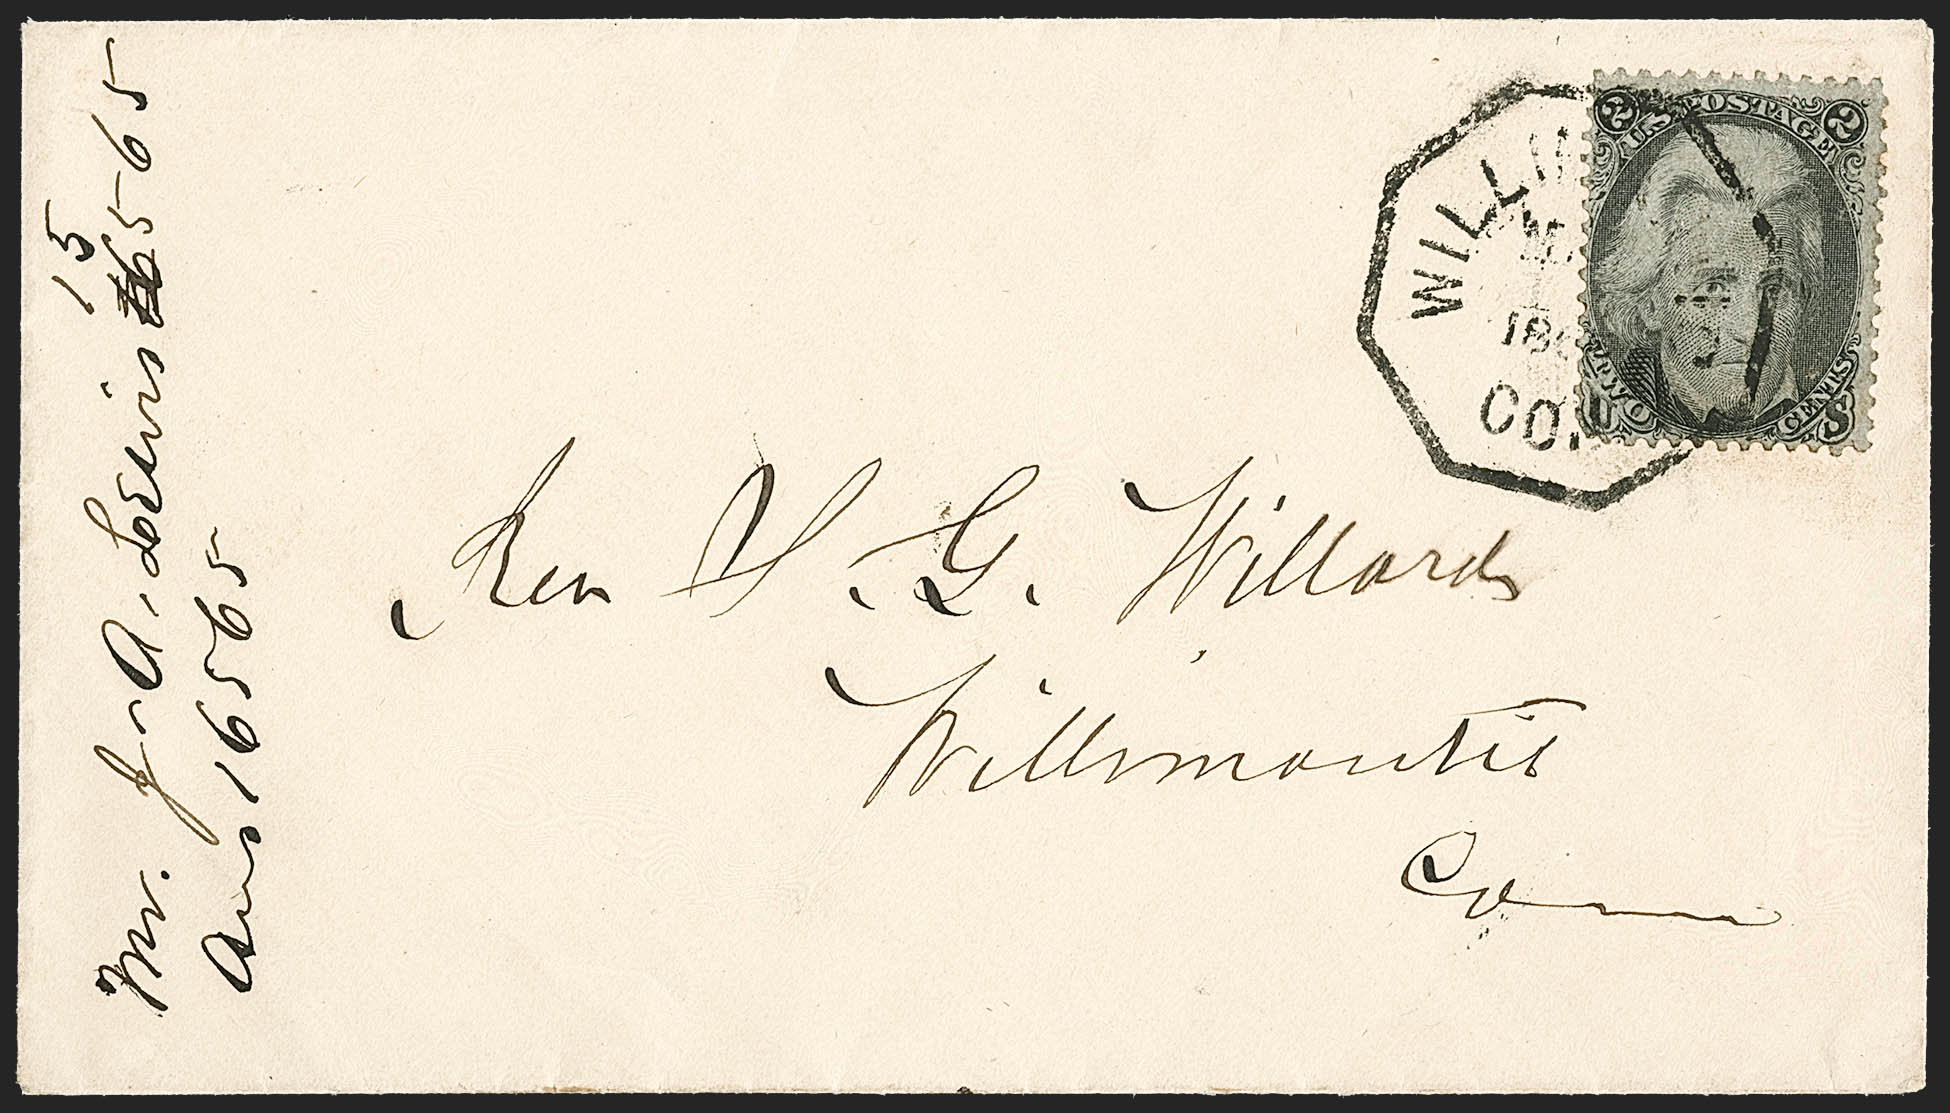 Mr. J. A. Lewis 15 5 65
Ans 16 5 65
WILLIM
M
186
CON
2 U.S. POSTAGE 2
U TWO CENTS S
Rev S. G. Willard
Willimantic
Conn